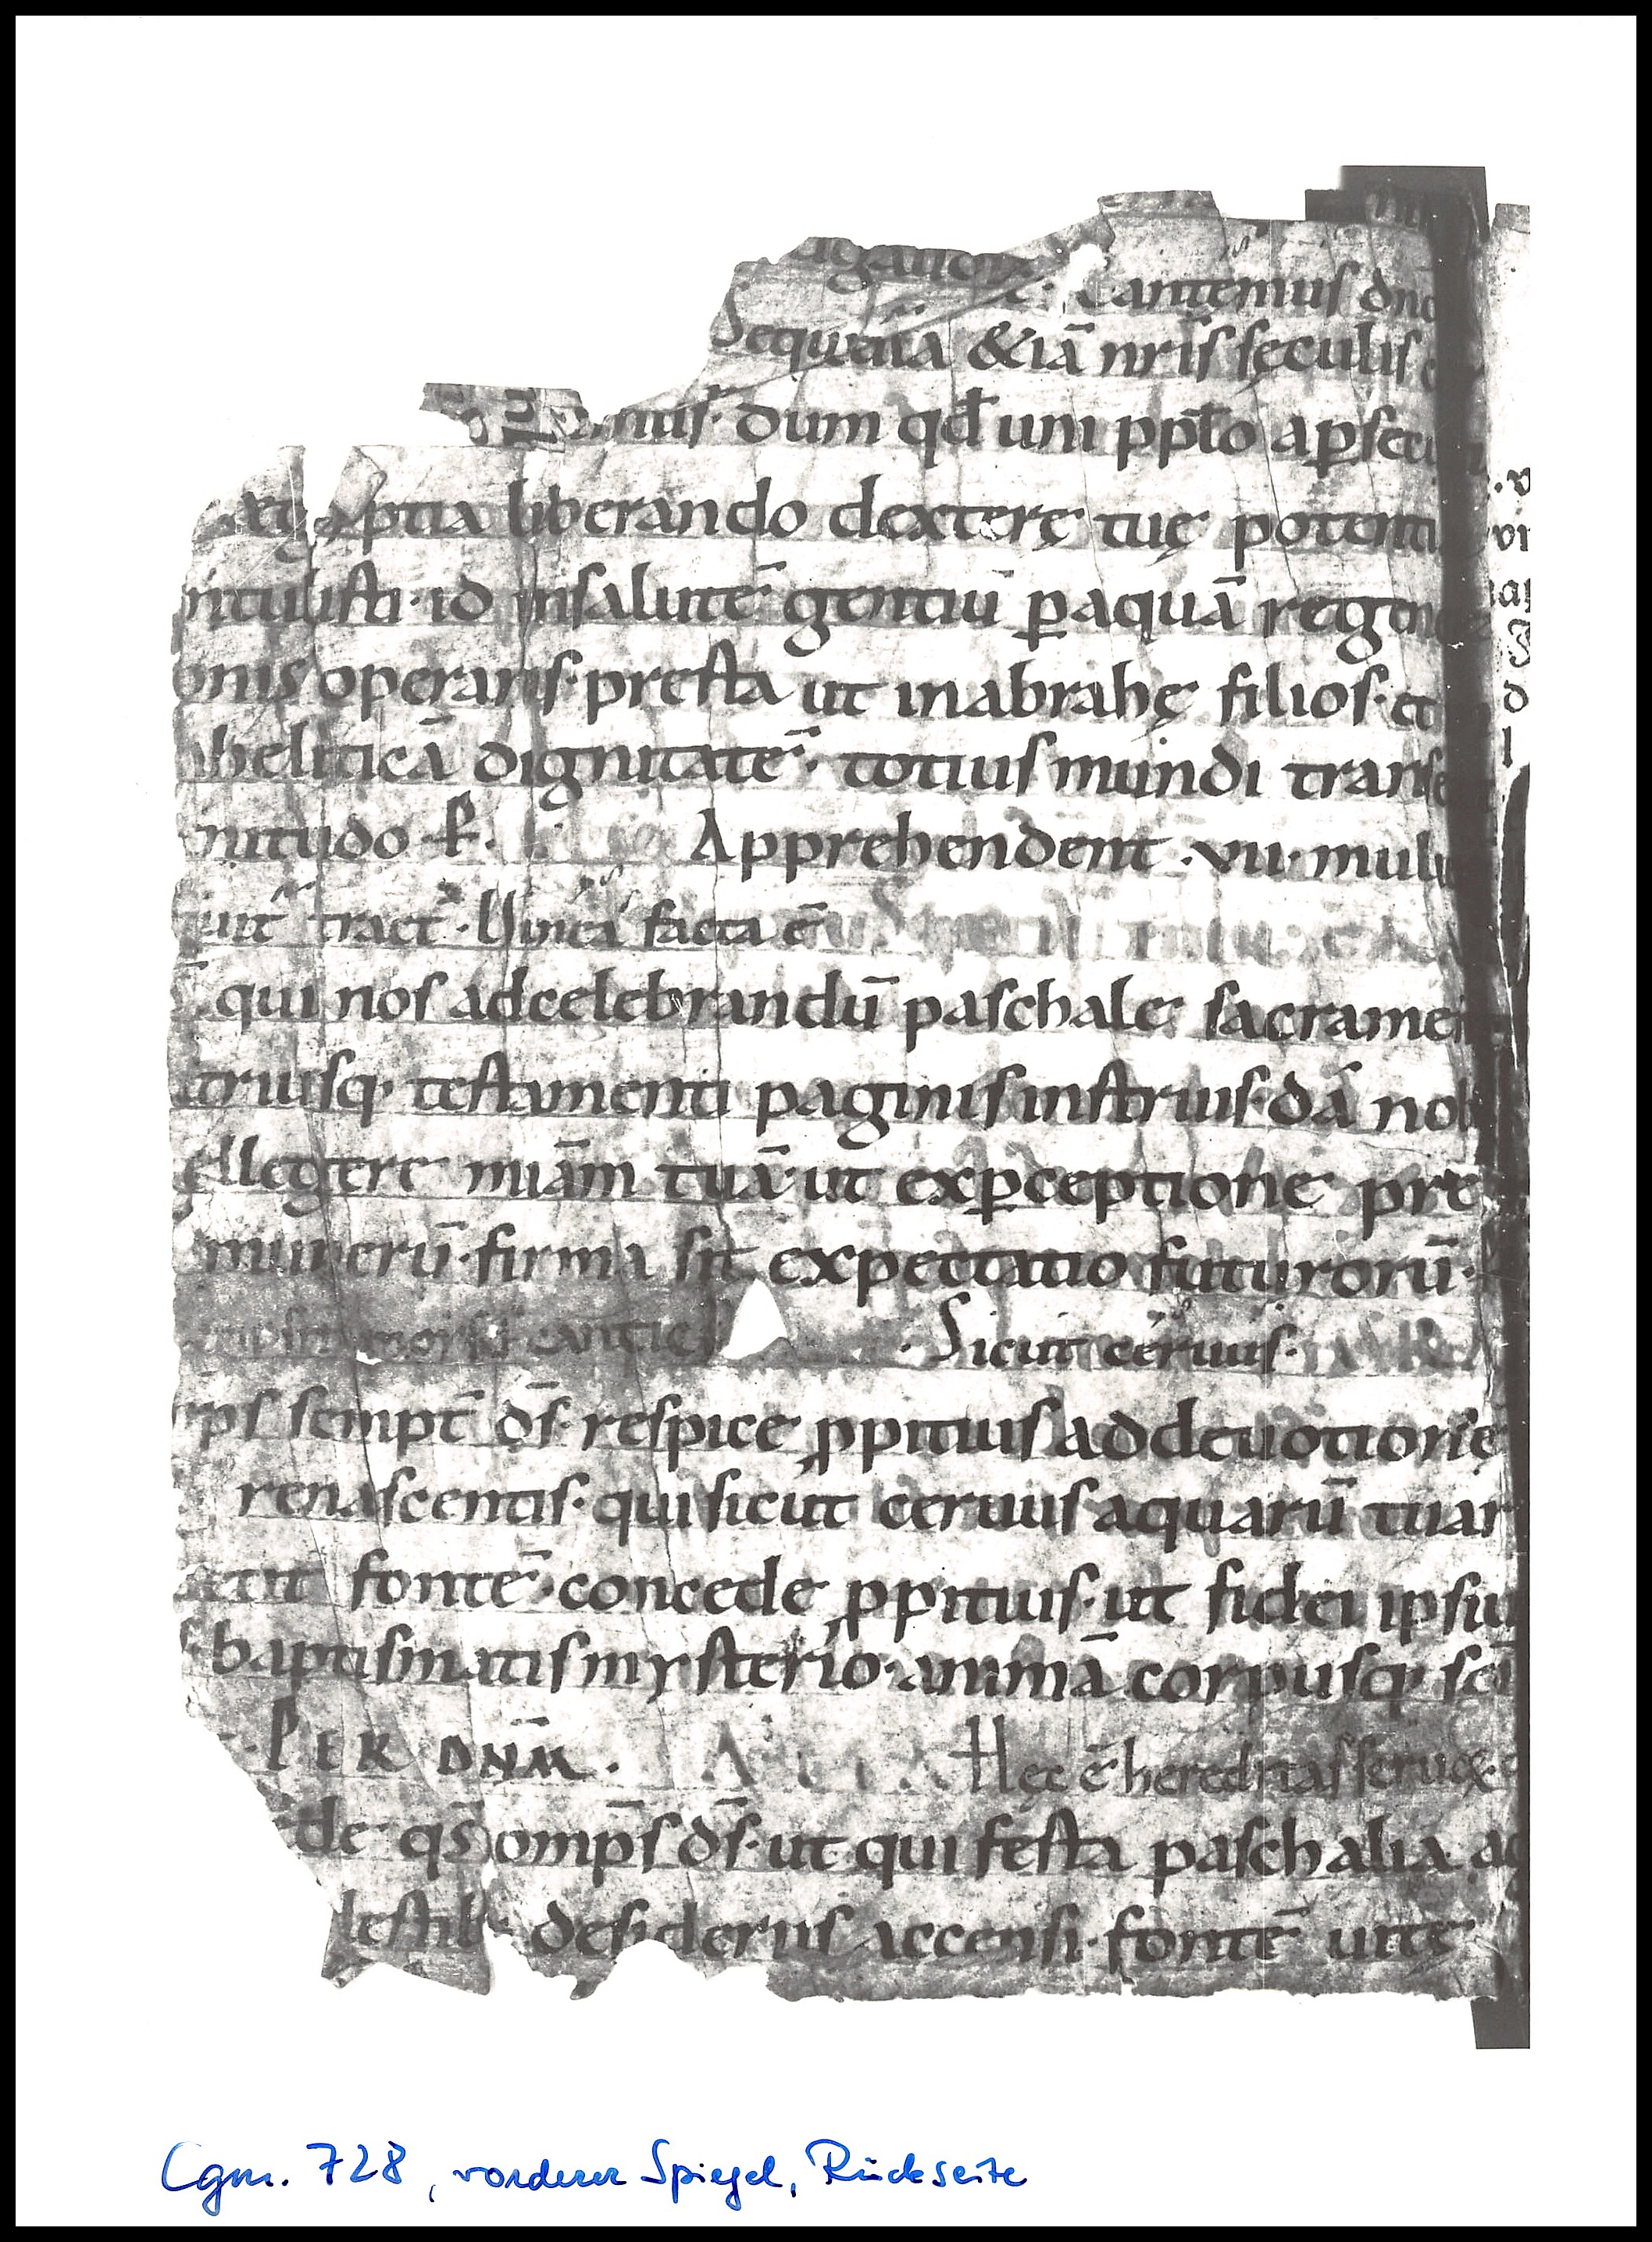 Cantemus dnō
Sequitur &iā nrīs sęculis
dum qđ uni ppło a p̱secu
liberando dexterę tuę potenti
ntulisti· id insalutē gentiū p̱aquā regene
onis operaris· presta ut inabrahę filios· et
helitica̅ dignitatē· totius mundi transe
nitudo P̱. Apprehendent ·vii· muli
uit tract· Uinea facta ē
qui nos adcelebrandū paschale sacramen
triusq; testamenti paginis instruis· dā nob
ellegere miām tuā· ut exp̱ceptione pre
munerū· firma sit expectatio futurorū·
Sicut ceruus·
ps sempt̄ ds̄· respice ꝓpitius addeuotione
renascentis· qui sicut ceruus aquarū tuar
fontē· concede ꝓpitius· ut fidei ipsiu
baptismatis mysterio· animā corpusq; sci
PER DNM̄. Hęc ē hereditas
de qs̄ omp̄s ds̄· ut qui festa paschalia ag
lestib; desideriis accensi· fontē uitę
Cgm. 728, vorderer Spiegel, Rückseite